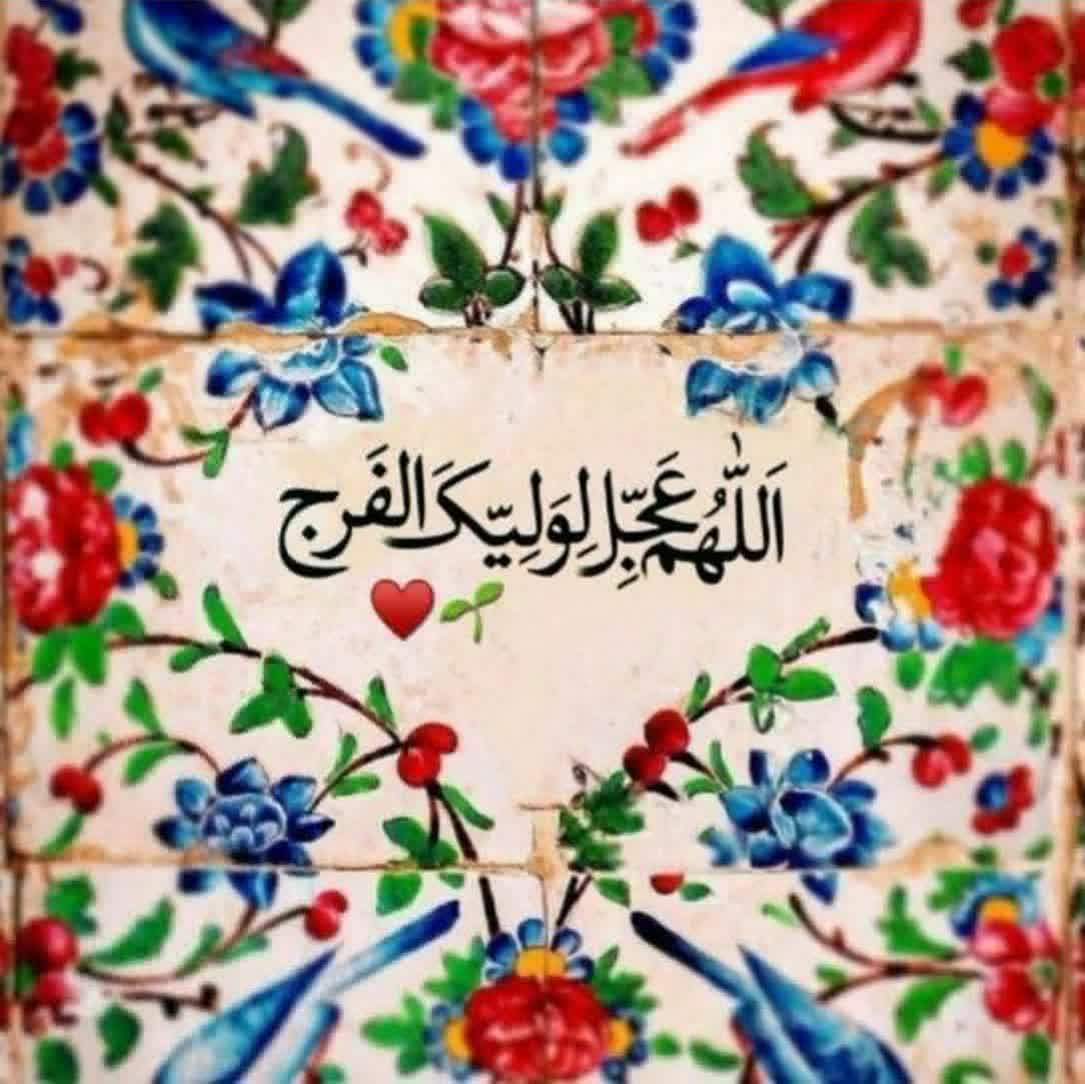 اَللّٰهُمَّ عَجِّل لِوَلِیِّکَ الفَرَج